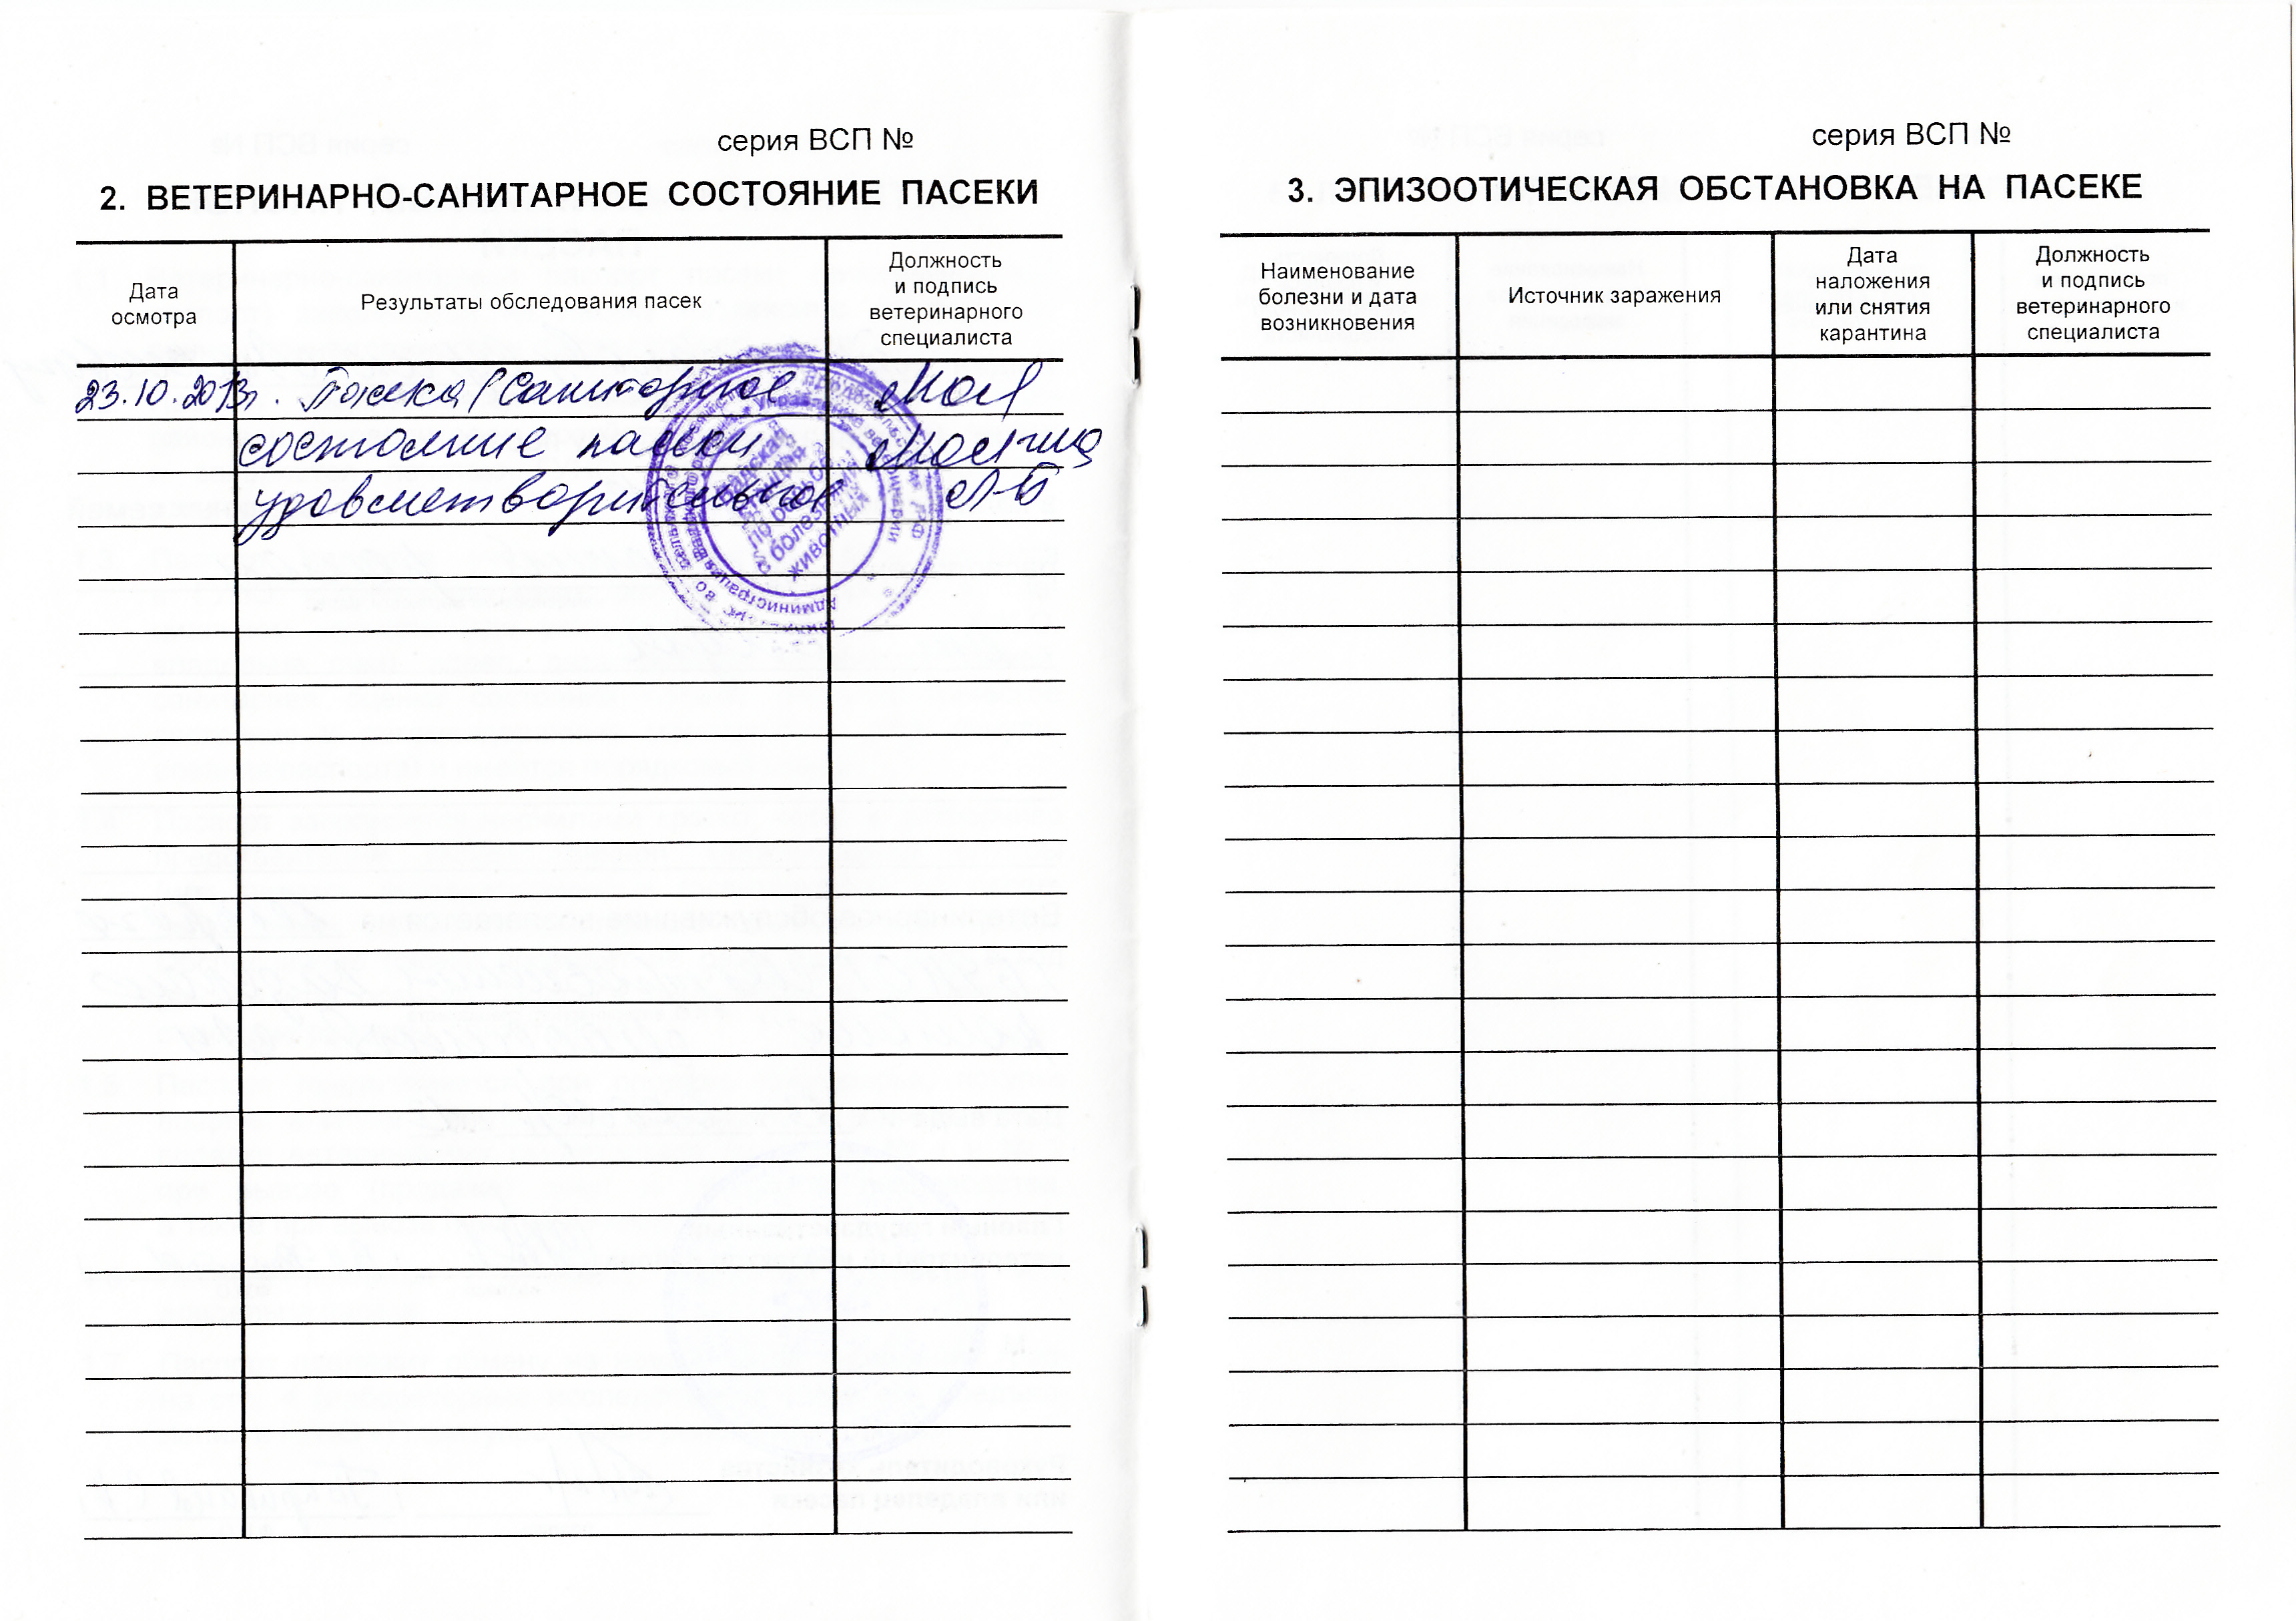 серия ВСП №
2. ВЕТЕРИНАРНО-САНИТАРНОЕ СОСТОЯНИЕ ПАСЕКИ
Дата
осмотра
Результаты обследования пасек
Должность
и подпись
ветеринарного
специалиста
23.10.2013г. Пасека Санитарное
состояние пасеки
удовлетворительное
станция
по борьбе
с болезнями
животных
серия ВСП №
3. ЭПИЗООТИЧЕСКАЯ ОБСТАНОВКА НА ПАСЕКЕ
Наименование
болезни и дата
возникновения
Источник заражения
Дата
наложения
или снятия
карантина
Должность
и подпись
ветеринарного
специалиста